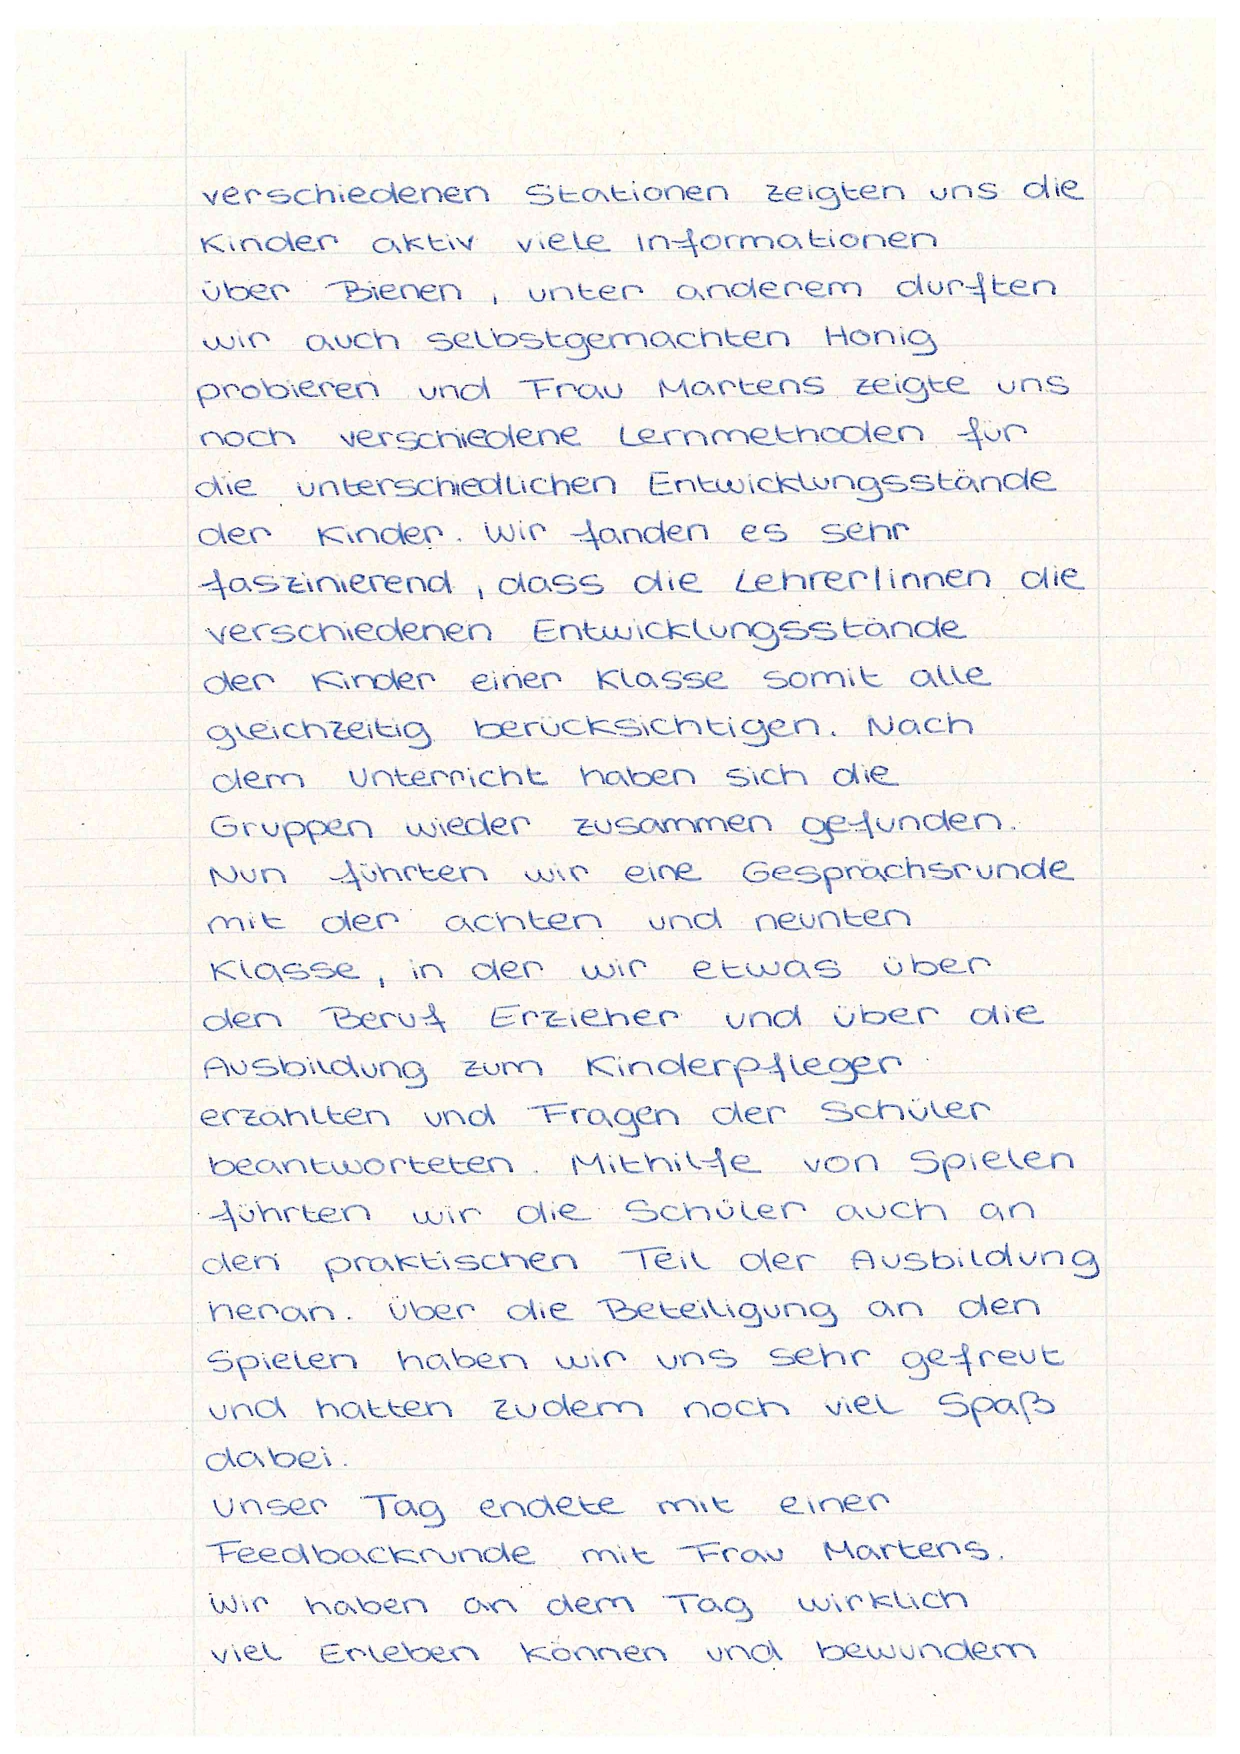 verschiedenen Stationen zeigten uns die
Kinder aktiv viele Informationen
über Bienen, unter anderem durften
wir auch selbstgemachten Honig
probieren und Frau Martens zeigte uns
noch verschiedene Lernmethoden für
die unterschiedlichen Entwicklungsstände
der Kinder. Wir fanden es sehr
faszinierend, dass die Lehrer/innen die
verschiedenen Entwicklungsstände
der Kinder einer Klasse somit alle
gleichzeitig berücksichtigen. Nach
dem Unterricht haben sich die
Gruppen wieder zusammen gefunden.
Nun führten wir eine Gesprächsrunde
mit der achten und neunten
Klasse, in der wir etwas über
den Beruf Erzieher und über die
Ausbildung zum Kinderpfleger
erzählten und Fragen der Schüler
beantworteten. Mithilfe von Spielen
führten wir die Schüler auch an
den praktischen Teil der Ausbildung
heran. Über die Beteiligung an den
Spielen haben wir uns sehr gefreut
und hatten zudem noch viel Spaß
dabei.
Unser Tag endete mit einer
Feedbackrunde mit Frau Martens.
Wir haben an dem Tag wirklich
viel Erleben können und bewundern